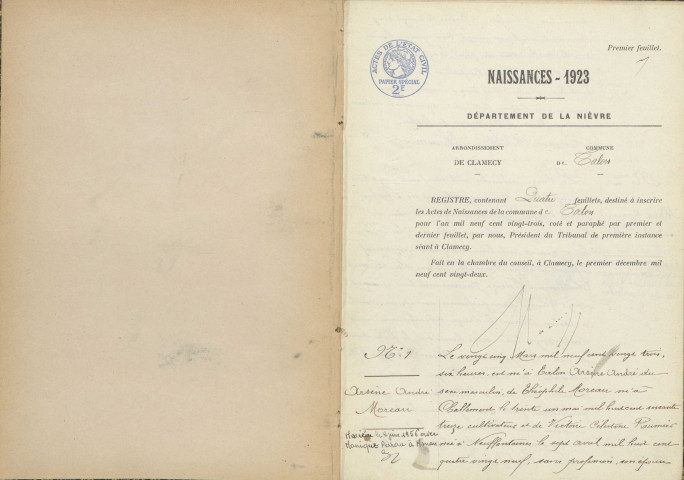 Premier feuillet.
1
ACTES DE L'ÉTAT CIVIL
PAPIER SPÉCIAL
2F
NAISSANCES - 1923
DÉPARTEMENT DE LA NIÈVRE
ARRONDISSEMENT
DE CLAMECY
COMMUNE
DE Talon
REGISTRE, contenant Quatre feuillets, destiné à inscrire
les Actes de Naissances de la commune de Talon
pour l'an mil neuf cent vingt-trois, coté et paraphé par premier et
dernier feuillet, par nous, Président du Tribunal de première instance
séant à Clamecy.
Fait en la chambre du conseil, à Clamecy, le premier décembre mil
neuf cent vingt-deux.
N° 1
Arsène André
Moreau
Marié le juin 1956 avec
Monique à
Le vingt cinq Mars mil neuf cent vingt trois,
six heures, est né à Talon Arsène André du
sexe masculin, de Théophile Moreau né à
Challement le trente un mai mil huit cent
treize cultivateur et de Victoire Célestine
née à Neuffontaines le sept avril mil huit cent
quatre vingt neuf, sans profession, son épouse